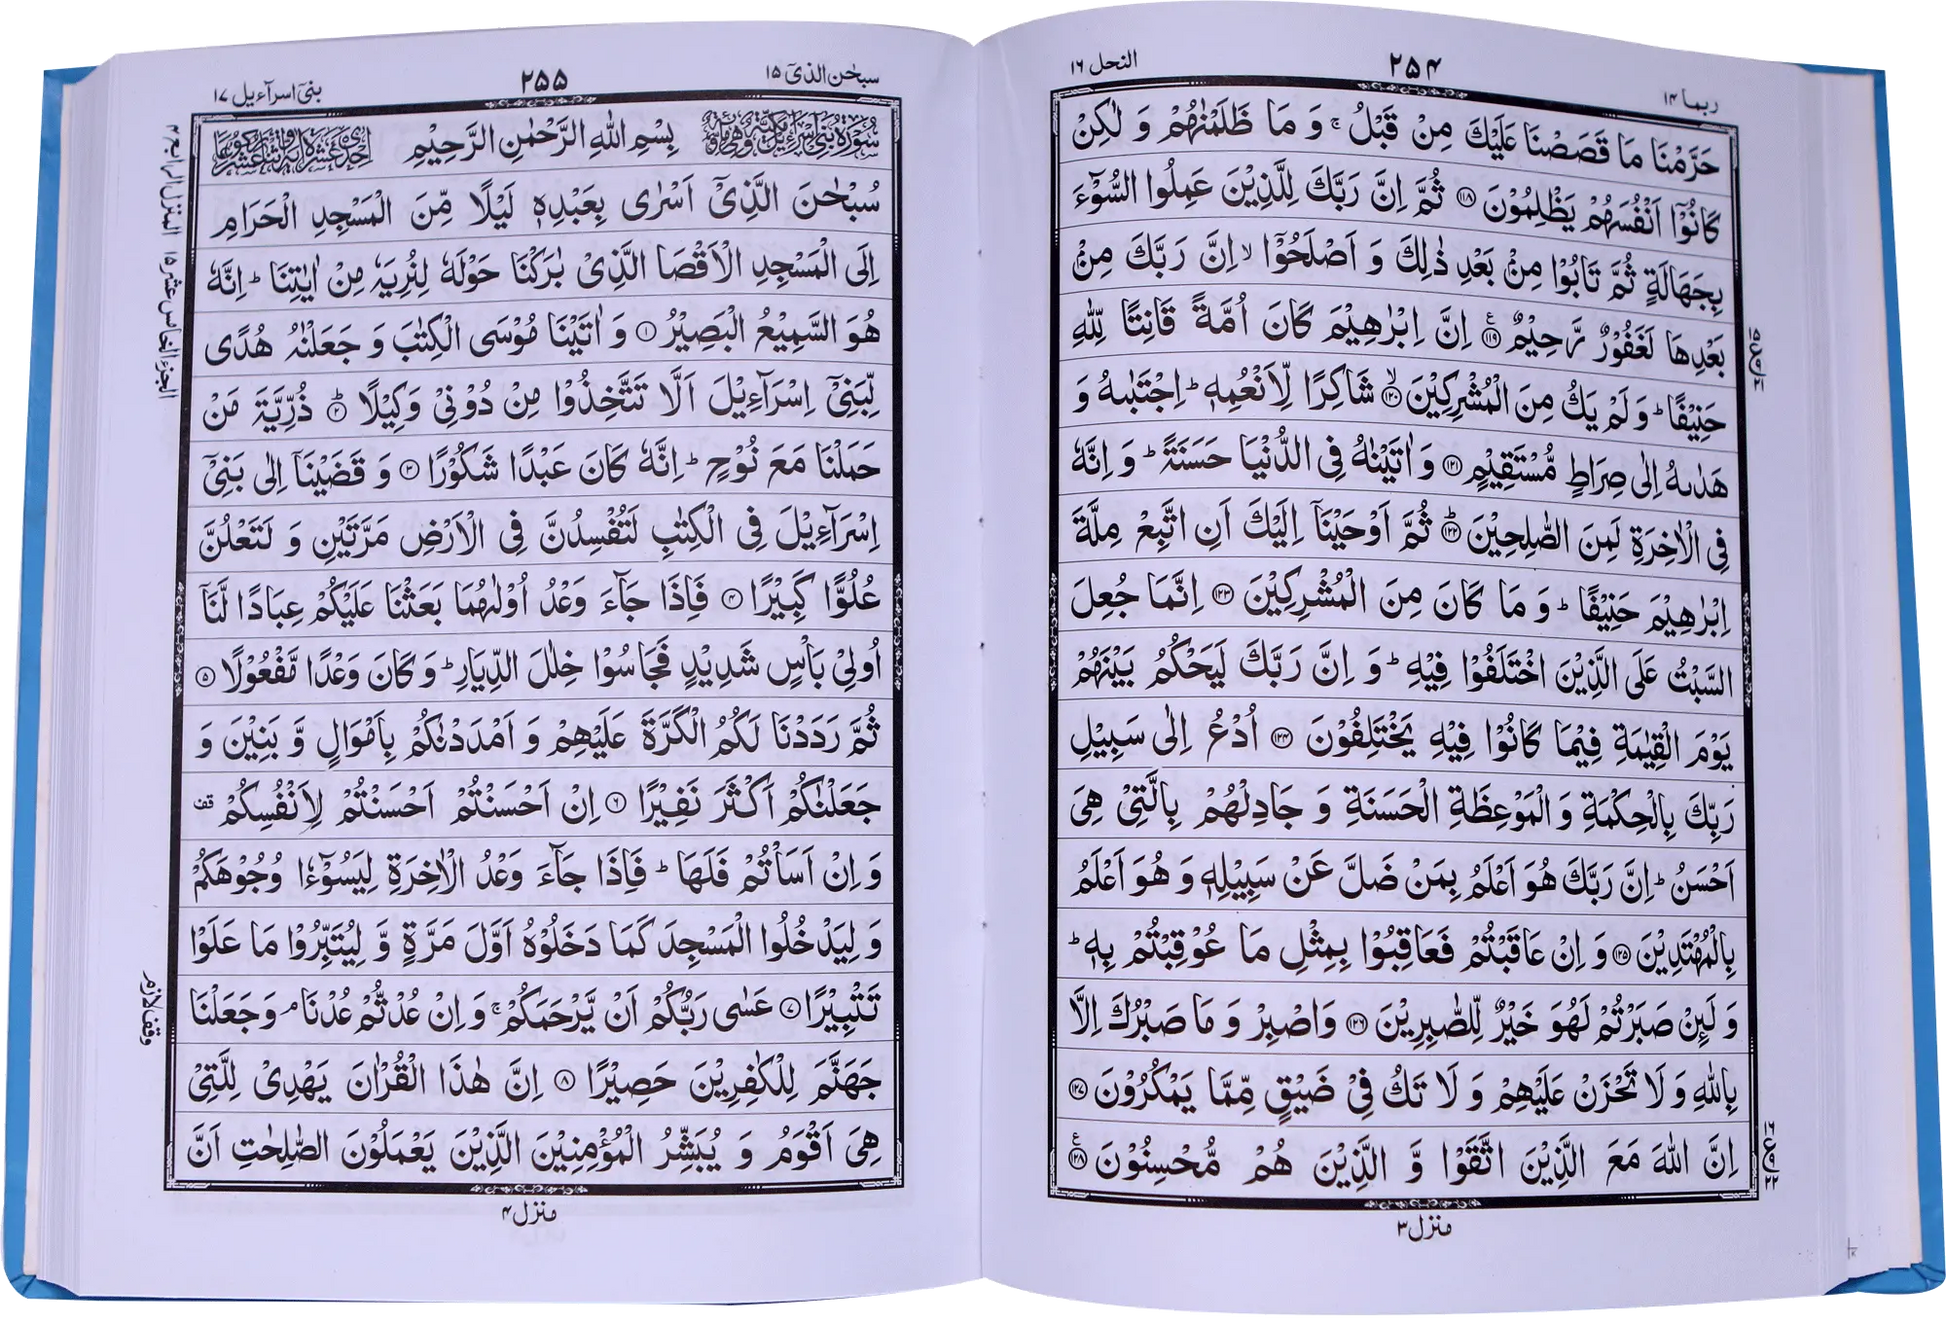 ربما ۱۴
۲۵۴
النحل ۱۶
حَرَّمْنَا مَا قَصَصْنَا عَلَيْكَ مِنْ قَبْلُ ۚ وَ مَا ظَلَمْنٰهُمْ وَ لٰكِنْ
كَانُوْۤا اَنْفُسَهُمْ يَظْلِمُوْنَ ۝۱۱۸ ثُمَّ اِنَّ رَبَّكَ لِلَّذِيْنَ عَمِلُوا السُّوْٓءَ
بِجَهَالَةٍ ثُمَّ تَابُوْا مِنْۢ بَعْدِ ذٰلِكَ وَ اَصْلَحُوْۤا ۙ اِنَّ رَبَّكَ مِنْۢ
بَعْدِهَا لَغَفُوْرٌ رَّحِيْمٌ ۝۱۱۹ اِنَّ اِبْرٰهِيْمَ كَانَ اُمَّةً قَانِتًا لِّلّٰهِ
حَنِيْفًا ؕ وَ لَمْ يَكُ مِنَ الْمُشْرِكِيْنَ ۝۱۲۰ شَاكِرًا لِّاَنْعُمِهٖ ؕ اِجْتَبٰىهُ وَ
هَدٰىهُ اِلٰى صِرَاطٍ مُّسْتَقِيْمٍ ۝۱۲۱ وَ اٰتَيْنٰهُ فِى الدُّنْيَا حَسَنَةً ؕ وَ اِنَّهٗ
فِى الْاٰخِرَةِ لَمِنَ الصّٰلِحِيْنَ ۝۱۲۲ ثُمَّ اَوْحَيْنَاۤ اِلَيْكَ اَنِ اتَّبِعْ مِلَّةَ
اِبْرٰهِيْمَ حَنِيْفًا ؕ وَ مَا كَانَ مِنَ الْمُشْرِكِيْنَ ۝۱۲۳ اِنَّمَا جُعِلَ
السَّبْتُ عَلَى الَّذِيْنَ اخْتَلَفُوْا فِيْهِ ؕ وَ اِنَّ رَبَّكَ لَيَحْكُمُ بَيْنَهُمْ
يَوْمَ الْقِيٰمَةِ فِيْمَا كَانُوْا فِيْهِ يَخْتَلِفُوْنَ ۝۱۲۴ اُدْعُ اِلٰى سَبِيْلِ
رَبِّكَ بِالْحِكْمَةِ وَ الْمَوْعِظَةِ الْحَسَنَةِ وَ جَادِلْهُمْ بِالَّتِىْ هِىَ
اَحْسَنُ ؕ اِنَّ رَبَّكَ هُوَ اَعْلَمُ بِمَنْ ضَلَّ عَنْ سَبِيْلِهٖ وَ هُوَ اَعْلَمُ
بِالْمُهْتَدِيْنَ ۝۱۲۵ وَ اِنْ عَاقَبْتُمْ فَعَاقِبُوْا بِمِثْلِ مَا عُوْقِبْتُمْ بِهٖ ؕ
وَ لَئِنْ صَبَرْتُمْ لَهُوَ خَيْرٌ لِّلصّٰبِرِيْنَ ۝۱۲۶ وَاصْبِرْ وَ مَا صَبْرُكَ اِلَّا
بِاللّٰهِ وَ لَا تَحْزَنْ عَلَيْهِمْ وَ لَا تَكُ فِىْ ضَيْقٍ مِّمَّا يَمْكُرُوْنَ ۝۱۲۷
اِنَّ اللّٰهَ مَعَ الَّذِيْنَ اتَّقَوْا وَّ الَّذِيْنَ هُمْ مُّحْسِنُوْنَ ۝۱۲۸
منزل ۳
سبحٰن الذیۤ ۱۵
۲۵۵
بنیۤ اسرآءیل ۱۷
بِسْمِ اللّٰهِ الرَّحْمٰنِ الرَّحِيْمِ
سُبْحٰنَ الَّذِىْۤ اَسْرٰى بِعَبْدِهٖ لَيْلًا مِّنَ الْمَسْجِدِ الْحَرَامِ
اِلَى الْمَسْجِدِ الْاَقْصَا الَّذِىْ بٰرَكْنَا حَوْلَهٗ لِنُرِيَهٗ مِنْ اٰيٰتِنَا ؕ اِنَّهٗ
هُوَ السَّمِيْعُ الْبَصِيْرُ ۝۱ وَ اٰتَيْنَا مُوْسَى الْكِتٰبَ وَ جَعَلْنٰهُ هُدًى
لِّبَنِىْۤ اِسْرَآءِيْلَ اَلَّا تَتَّخِذُوْا مِنْ دُوْنِىْ وَكِيْلًا ۝۲ ذُرِّيَّةَ مَنْ
حَمَلْنَا مَعَ نُوْحٍ ؕ اِنَّهٗ كَانَ عَبْدًا شَكُوْرًا ۝۳ وَ قَضَيْنَاۤ اِلٰى بَنِىْۤ
اِسْرَآءِيْلَ فِى الْكِتٰبِ لَتُفْسِدُنَّ فِى الْاَرْضِ مَرَّتَيْنِ وَ لَتَعْلُنَّ
عُلُوًّا كَبِيْرًا ۝۴ فَاِذَا جَآءَ وَعْدُ اُوْلٰىهُمَا بَعَثْنَا عَلَيْكُمْ عِبَادًا لَّنَاۤ
اُولِىْ بَاْسٍ شَدِيْدٍ فَجَاسُوْا خِلٰلَ الدِّيَارِ ؕ وَ كَانَ وَعْدًا مَّفْعُوْلًا ۝۵
ثُمَّ رَدَدْنَا لَكُمُ الْكَرَّةَ عَلَيْهِمْ وَ اَمْدَدْنٰكُمْ بِاَمْوَالٍ وَّ بَنِيْنَ وَ
جَعَلْنٰكُمْ اَكْثَرَ نَفِيْرًا ۝۶ اِنْ اَحْسَنْتُمْ اَحْسَنْتُمْ لِاَنْفُسِكُمْ قف
وَ اِنْ اَسَاْتُمْ فَلَهَا ؕ فَاِذَا جَآءَ وَعْدُ الْاٰخِرَةِ لِيَسُوْٓءٗا وُجُوْهَكُمْ
وَ لِيَدْخُلُوا الْمَسْجِدَ كَمَا دَخَلُوْهُ اَوَّلَ مَرَّةٍ وَّ لِيُتَبِّرُوْا مَا عَلَوْا
تَتْبِيْرًا ۝۷ عَسٰى رَبُّكُمْ اَنْ يَّرْحَمَكُمْ ۚ وَ اِنْ عُدْتُّمْ عُدْنَا ۘ وَ جَعَلْنَا
جَهَنَّمَ لِلْكٰفِرِيْنَ حَصِيْرًا ۝۸ اِنَّ هٰذَا الْقُرْاٰنَ يَهْدِىْ لِلَّتِىْ
هِىَ اَقْوَمُ وَ يُبَشِّرُ الْمُؤْمِنِيْنَ الَّذِيْنَ يَعْمَلُوْنَ الصّٰلِحٰتِ اَنَّ
منزل ۴
الجزء الخامس عشر ۱۵
وقف لازم